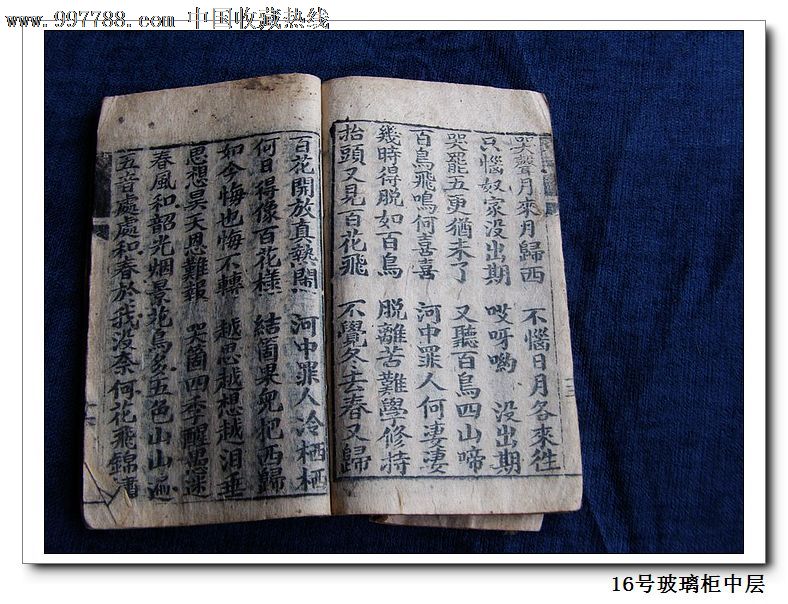 www.997788.com 中国收藏热线
哭聲月來月歸西 不惱日月各來徃
只惱奴家没出期 哎呀喲 没出期
哭罷五更猶未了 又聽百鳥四山啼
百鳥飛鳴何喜喜 河中罪人何凄凄
幾時得脱如百鳥 脱離苦難學修持
抬頭又見百花飛 不覺冬去春又歸
百花開放真熱鬧 河中罪人冷栖栖
何日得像百花樣 結箇果兒把西歸
如今悔也悔不轉 越思越想越泪垂
思想昊天恩難報 哭箇四季醒愚迷
春風和韶光烟景花鳥多五色山山遍
五音處處和春於我没奈何花飛錦繡
16号玻璃柜中层